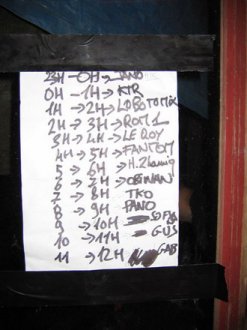 23H → 0H → JANO
0H → 1H → KTR
1H → 2H → LOBOTOMIK
2H → 3H → ROM1
3H → 4H → LE ROY
4H → 5H → FANTOM
5 → 6H →
6 → 7H → OBIWAN
7 → 8H TKO
8 → 9H PANO
9 → 10H →
10 → 11H → GUS
11 → 12H GAB